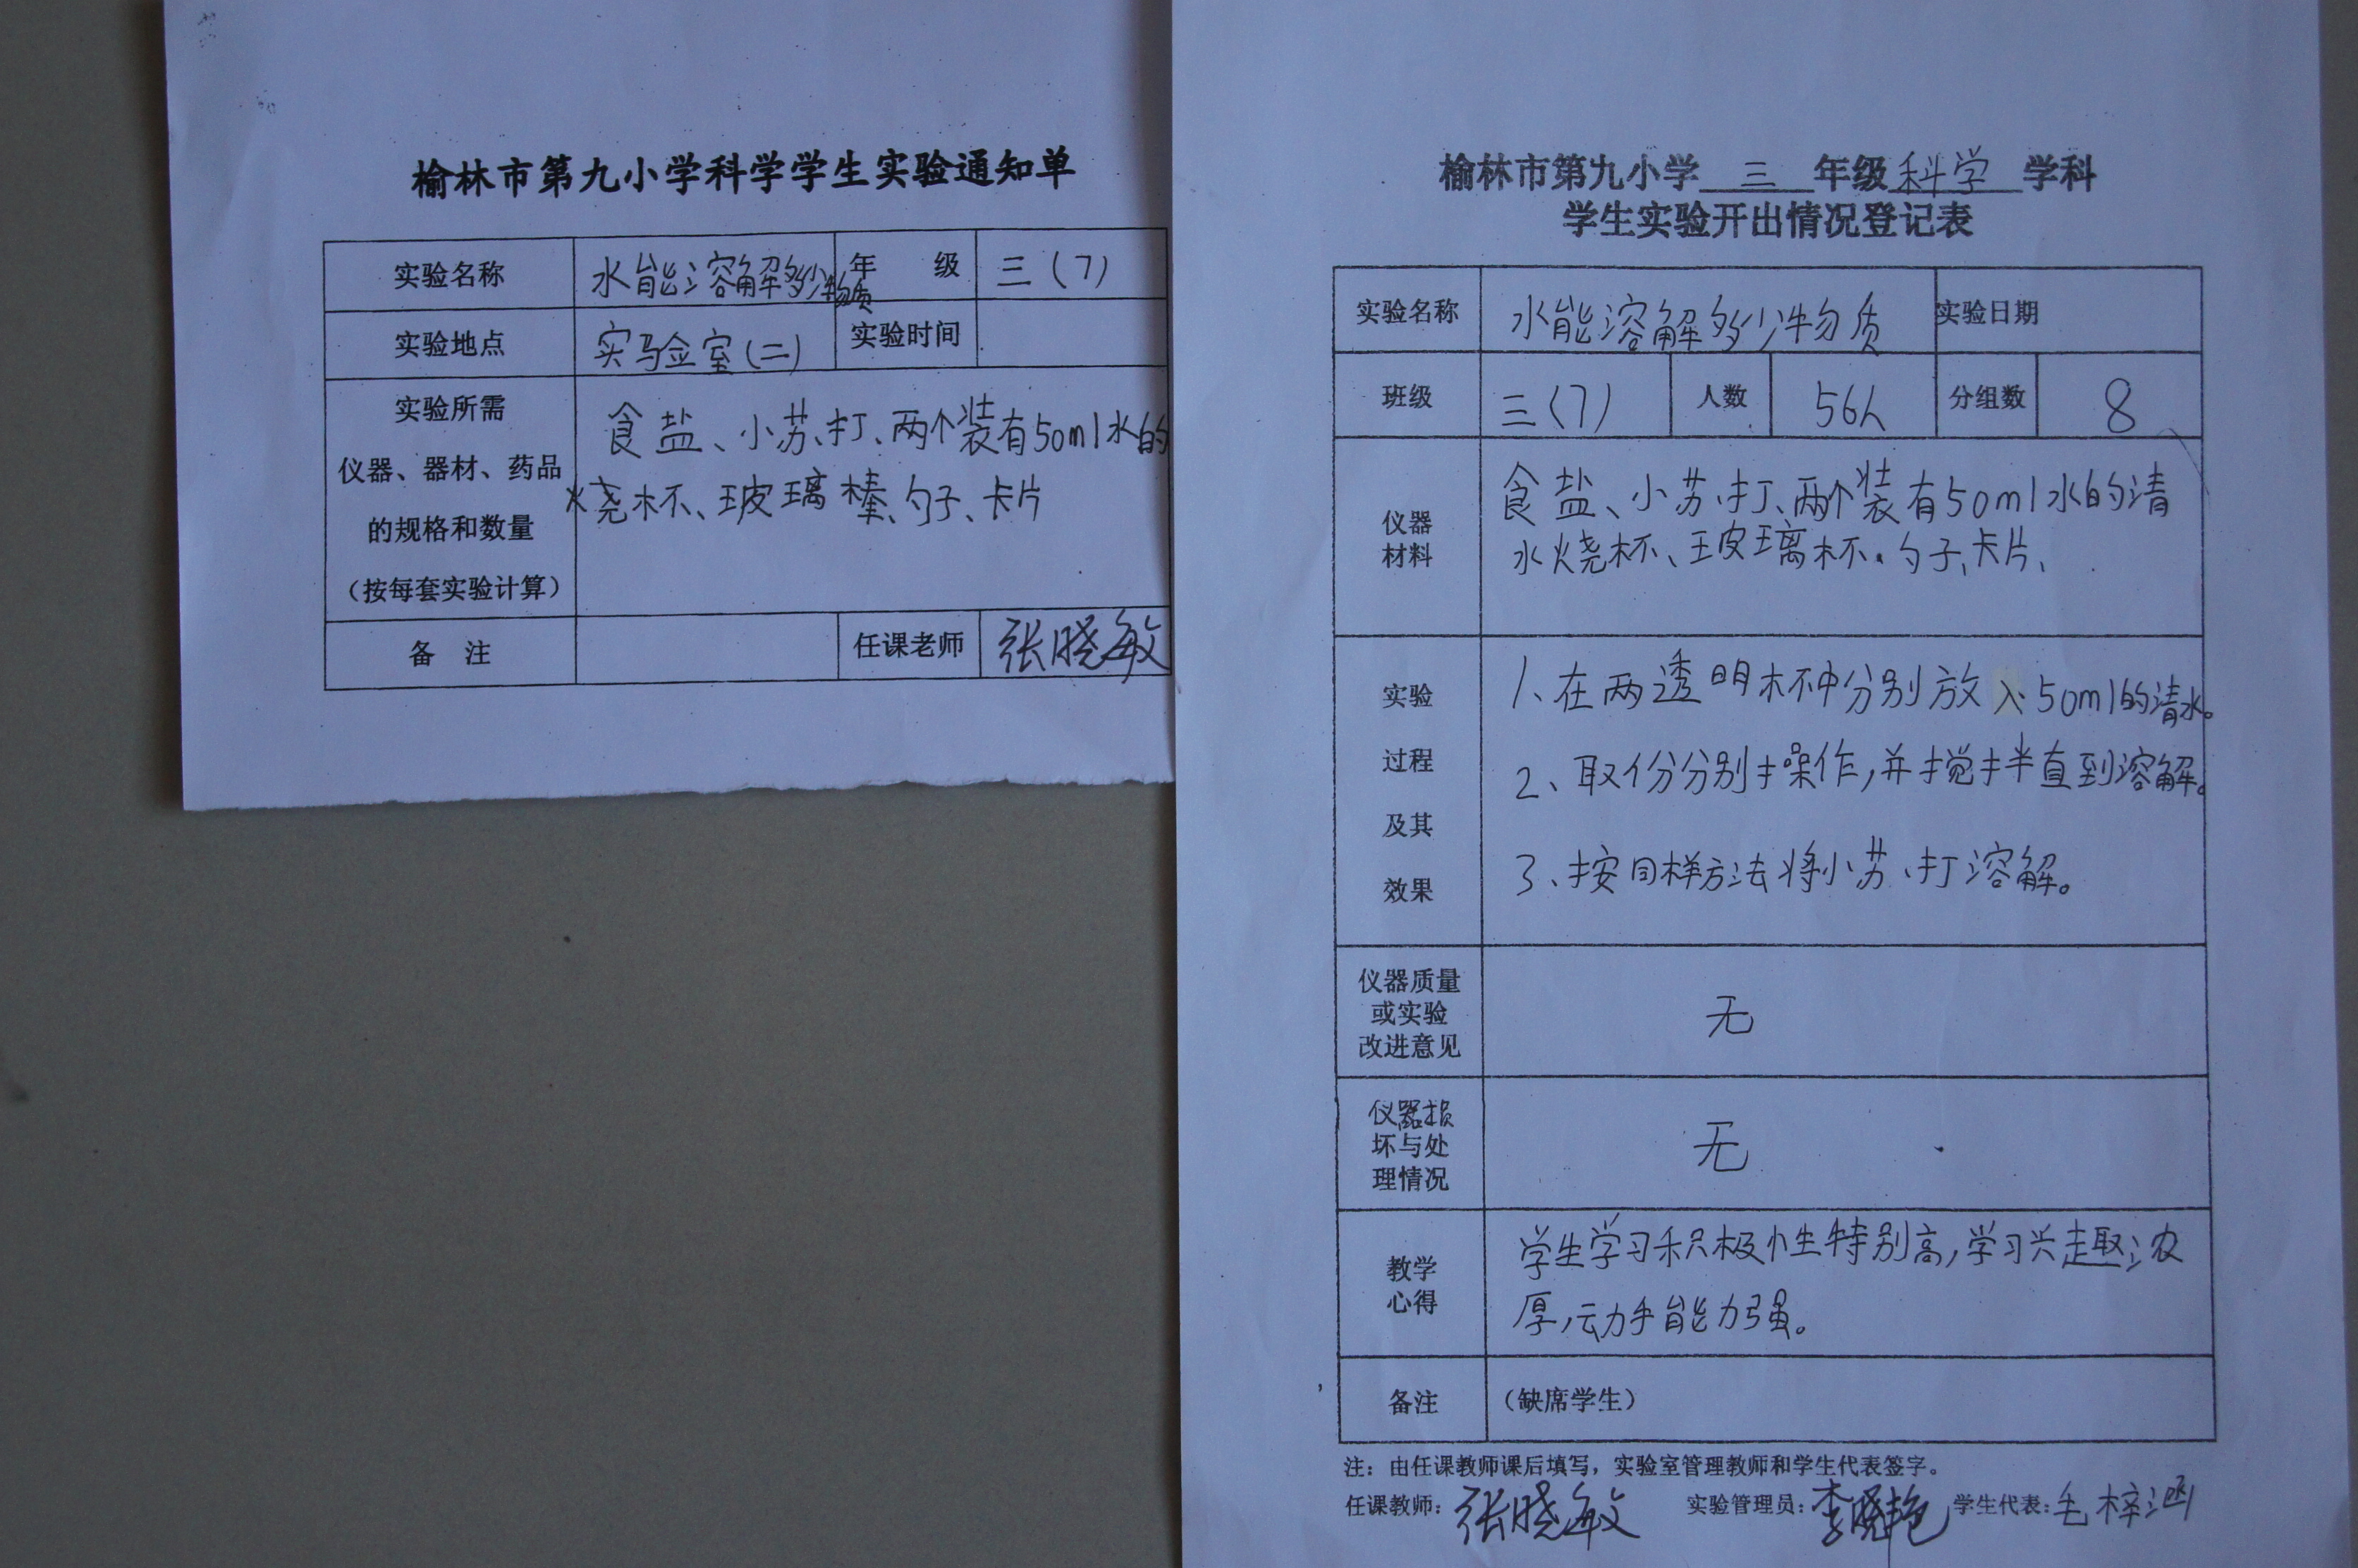 榆林市第九小学科学学生实验通知单
实验名称 水能溶解多少物质 年 级 三(7)
实验地点 实验室(二) 实验时间
实验所需
仪器、器材、药品
的规格和数量
(按每套实验计算)
食盐、小苏打、两个装有50ml水的
烧杯、玻璃棒、勺子、卡片
备 注 任课老师 张晓敏
榆林市第九小学 三 年级 科学 学科
学生实验开出情况登记表
实验名称 水能溶解多少物质 实验日期
班级 三(7) 人数 56人 分组数 8
仪器
材料
食盐、小苏打、两个装有50ml水的清
水烧杯、玻璃杯、勺子、卡片、
实验
过程
及其
效果
1、在两透明杯中分别放入50ml的清水。
2、取份分别操作,并搅拌直到溶解。
3、按同样方法将小苏打溶解。
仪器质量
或实验
改进意见
无
仪器损
坏与处
理情况
无
教学
心得
学生学习积极性特别高,学习兴趣浓
厚,动手能力强。
备注 (缺席学生)
注:由任课教师课后填写,实验室管理教师和学生代表签字。
任课教师:张晓敏 实验管理员:李晓艳 学生代表:毛梓涵